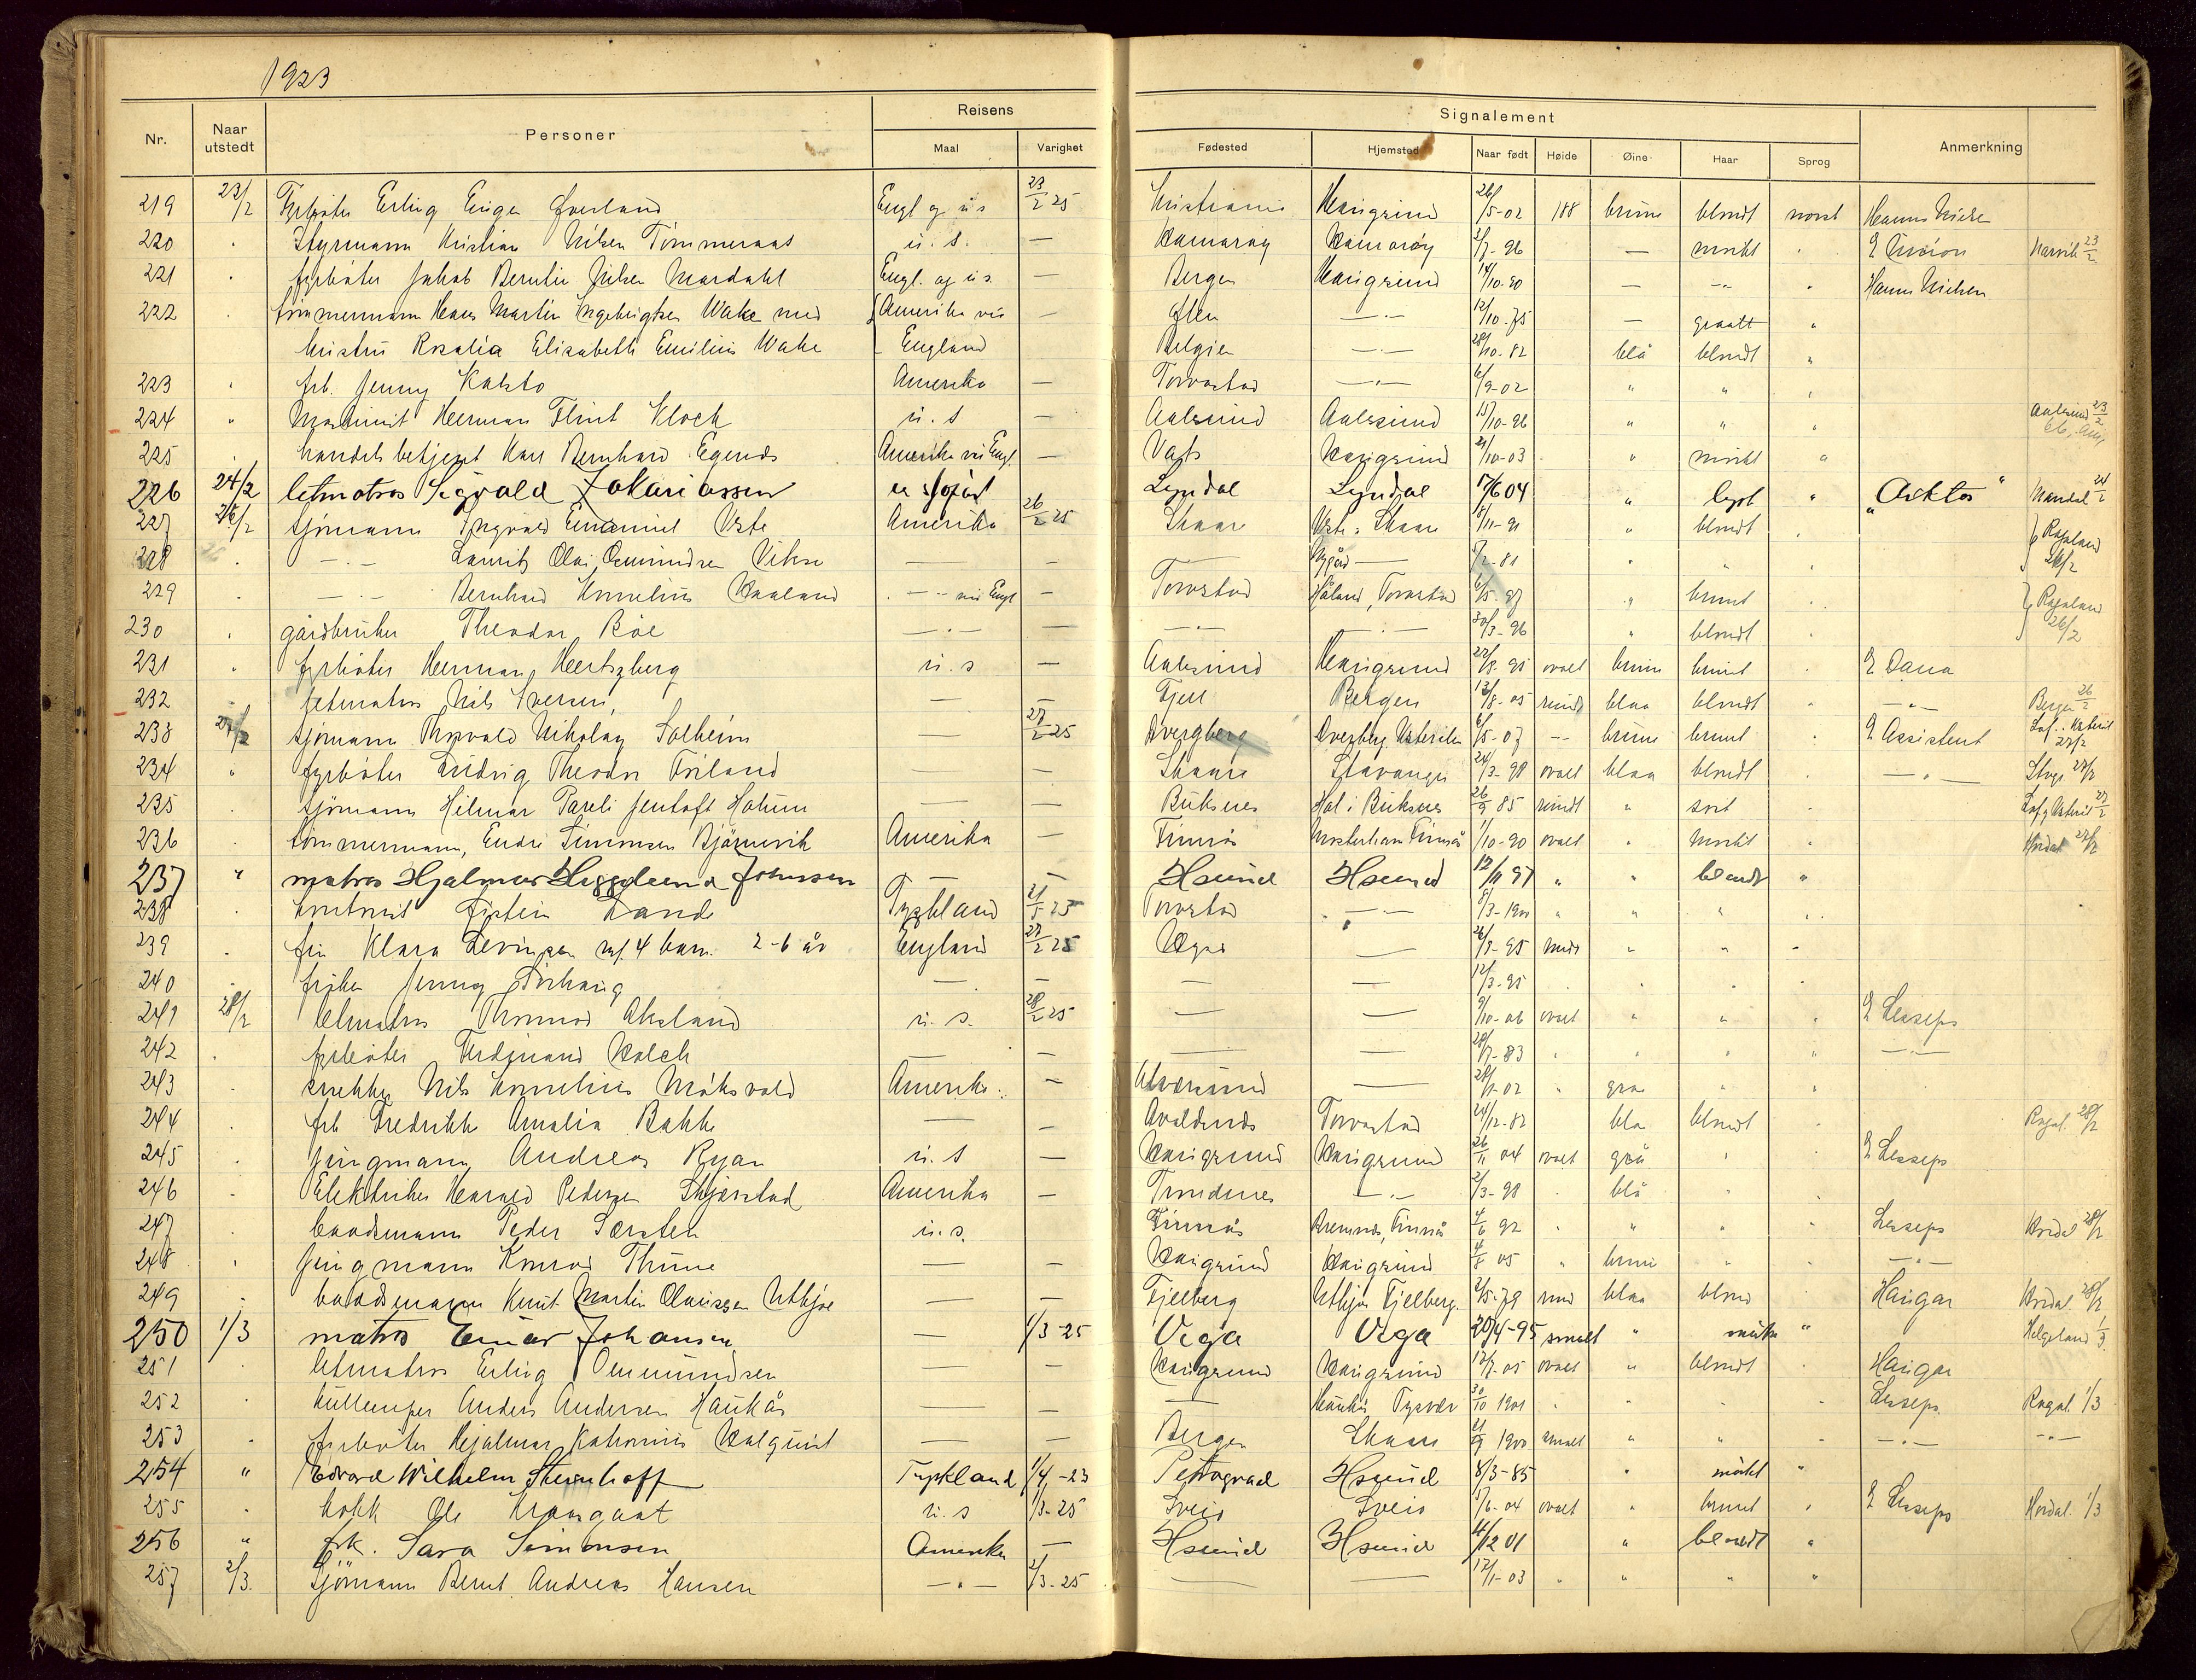 1923
Nr. Naar utstedt Personer Reisens Maal Varighet Signalement Fødested Hjemsted Naar født Høide Øine Haar Sprog Anmerkning
219 23/2 Fyrbøter Erling Enger Øverland Engl og u s 23/2 25 Kristiania Haugesund 26/5-02 188 brune blondt norsk Hanna Nielsen
220 Styrmann Kristian Nilsen Tømmeraas u. s. — Hamarøy Hamarøy 2/7-96 — mørkt Narvik 23/2
221 fyrbøter Jakob Berntin Nilsen Mardahl Engl. og u s. — Bergen Haugesund 14/10-90 — Hanna Nielsen
222 tømmermann Hans Martin Ingebrigtsen Wake med Amerika via — 12/10-75 — graatt "
hustru Rosalia Elisabeth Emilius Wake England Belgien 28/10-82 blå blondt "
223 frk. Jenny Kalstø Amerika — Torvastad 6/9-02 " " "
224 " Maskinist Herman Flint Klock u. s — Aalesund Aalesund 15/10-96 " " Aalesund 23/2
225 handelsbetjent Karl Bernhard Egends Amerika via Engl. — Vats Haugesund 21/10-03 " mørkt "
226 24/2 letmatros Sigvald Zakariassen u s fart Lyndal Lyndal 17/6 04 " lyst " "Arktos" Mandal 24/2
227 26/2 sjømann Ingvald Emanuel Veste Amerika 26/2 25 Skaare Skaare 11-91 " blondt Rogaland 26/2
228 — Lauritz Olai Omundsen Vikse — — Nygård — 2-81 " "
229 — Bernhard Kornelius Haaland — via Engl — Torvastad Håland, Torvastad 6/5-97 " brunt Rogaland 26/2
230 gårdbruker Theodor Bøe — — — 30/3-96 " blondt
231 " fyrbøter Herman Hertzberg u. s — Aalesund Haugesund 22/8-95 ovalt brune brunt E Dana
232 letmatros Nils Iversen, — — Fjell Bergen 13/8-05 rundt blaa blondt — Bergen 26/2
233 27/2 sjømann Thorvald Nikolay Solheim — 27/2-25 Dvergberg Dverberg Vesterålen 6/5-07 — brune brunt E Assistent Lof. Vesterål 27/2
234 " fyrbøter Ludvig Theodor Friland — — Skaare Stavanger 24/3-98 ovalt blaa blondt — Stvgr 27/2
235 sjømann Hilmar Pareli Jentoft Holum — — Buksnes Hol i Buksnes 26/9 85 rundt " sort Lof. Vesterål 27/2
236 tømmermann, Endre Simonsen Bjørnevik Amerika — Finnås Mosterhavn Finnås 1/10-90 ovalt " mørkt Hordal 27/2
237 " matros Hjalmar Heggelund Johnsen — — Hsund Hsund 12/11 97 " " blondt "
238 Kontorist Eistein Lande Tyskland 21/5 23 Torvastad — 8/3-1900 " " "
239 fru Klara Levinsen m/ 4 barn 2-6 år England 27/2 25 — 26/3-95 rundt " " "
240 frøken Jenny Torhaug — — — — 12/3-95
241 28/2 letmatros Thormod Aksland u. s. 28/2 25 — — 9/10-06 ovalt " " " E Lesseps
242 fyrbøter Ferdinand Kalch — — — — 28/7-83 —
243 snekker Nils Kornelius Måksvold Amerika — Alversund — 28/1-02 " graa " "
244 frk Fredrikke Amalia Bakke — — Avaldsnes Torvastad 24/12-82 blå blondt Rogal. 28/2
245 jungmann Andreas Ryan u. s — Haugesund Haugesund 26/11 04 ovalt grå E Lesseps
246 Elektriker Harald Pedersen Skjerstad Amerika — Trondenes — 2/3-98 blå
247 baadsmann Peder Sørsten u. s. Finnås Bremnes, Finnås 4/6 92 " " Lesseps Hordal 28/2
248 jungmann Konrad Thune — — Haugesund Haugesund 4/8 05 " brune —
249 baadsmann Knut Martin Olaussen Utbjoe — — Fjelberg Utbjoe Fjelberg. 2/5-79 rund blaa blond Haugar Hordal. 28/2
250 1/3 matros Einar Johansen — 1/3-25 Vega Vega 20/4-95 smalt " mørke " Helgeland 1/3
251 letmatros Erling Ommundsen — — Haugesund Haugesund 12/7-05 ovalt " blondt Haugar
252 kullemper Anders Andersen Haukås — — — Haukås Tysvær 30/10 1901 " " Lesseps. Rogal. 1/3
253 fyrbøter Hjalmar Kahornius Halquist — — Bergen Skaare 21/9 1900 smalt " " — —
254 " Edvard Wilhelm Sternhoff Tyskland 1/4-23 Petrograd Hsund 8/3-85 " mørkt "
255 kokk Ole Krossgaat u. s 1/3-25 Sveio Sveio 17/6-04 ovalt " brunt " E Lesseps Hordal. 1/3
256 " frk. Sara Simonsen Amerika — Hsund Hsund 4/12 01 " blondt "
257 2/3. sjømann Bernt Andreas Hansen — 2/3-25 — — 12/1-03 " " " "